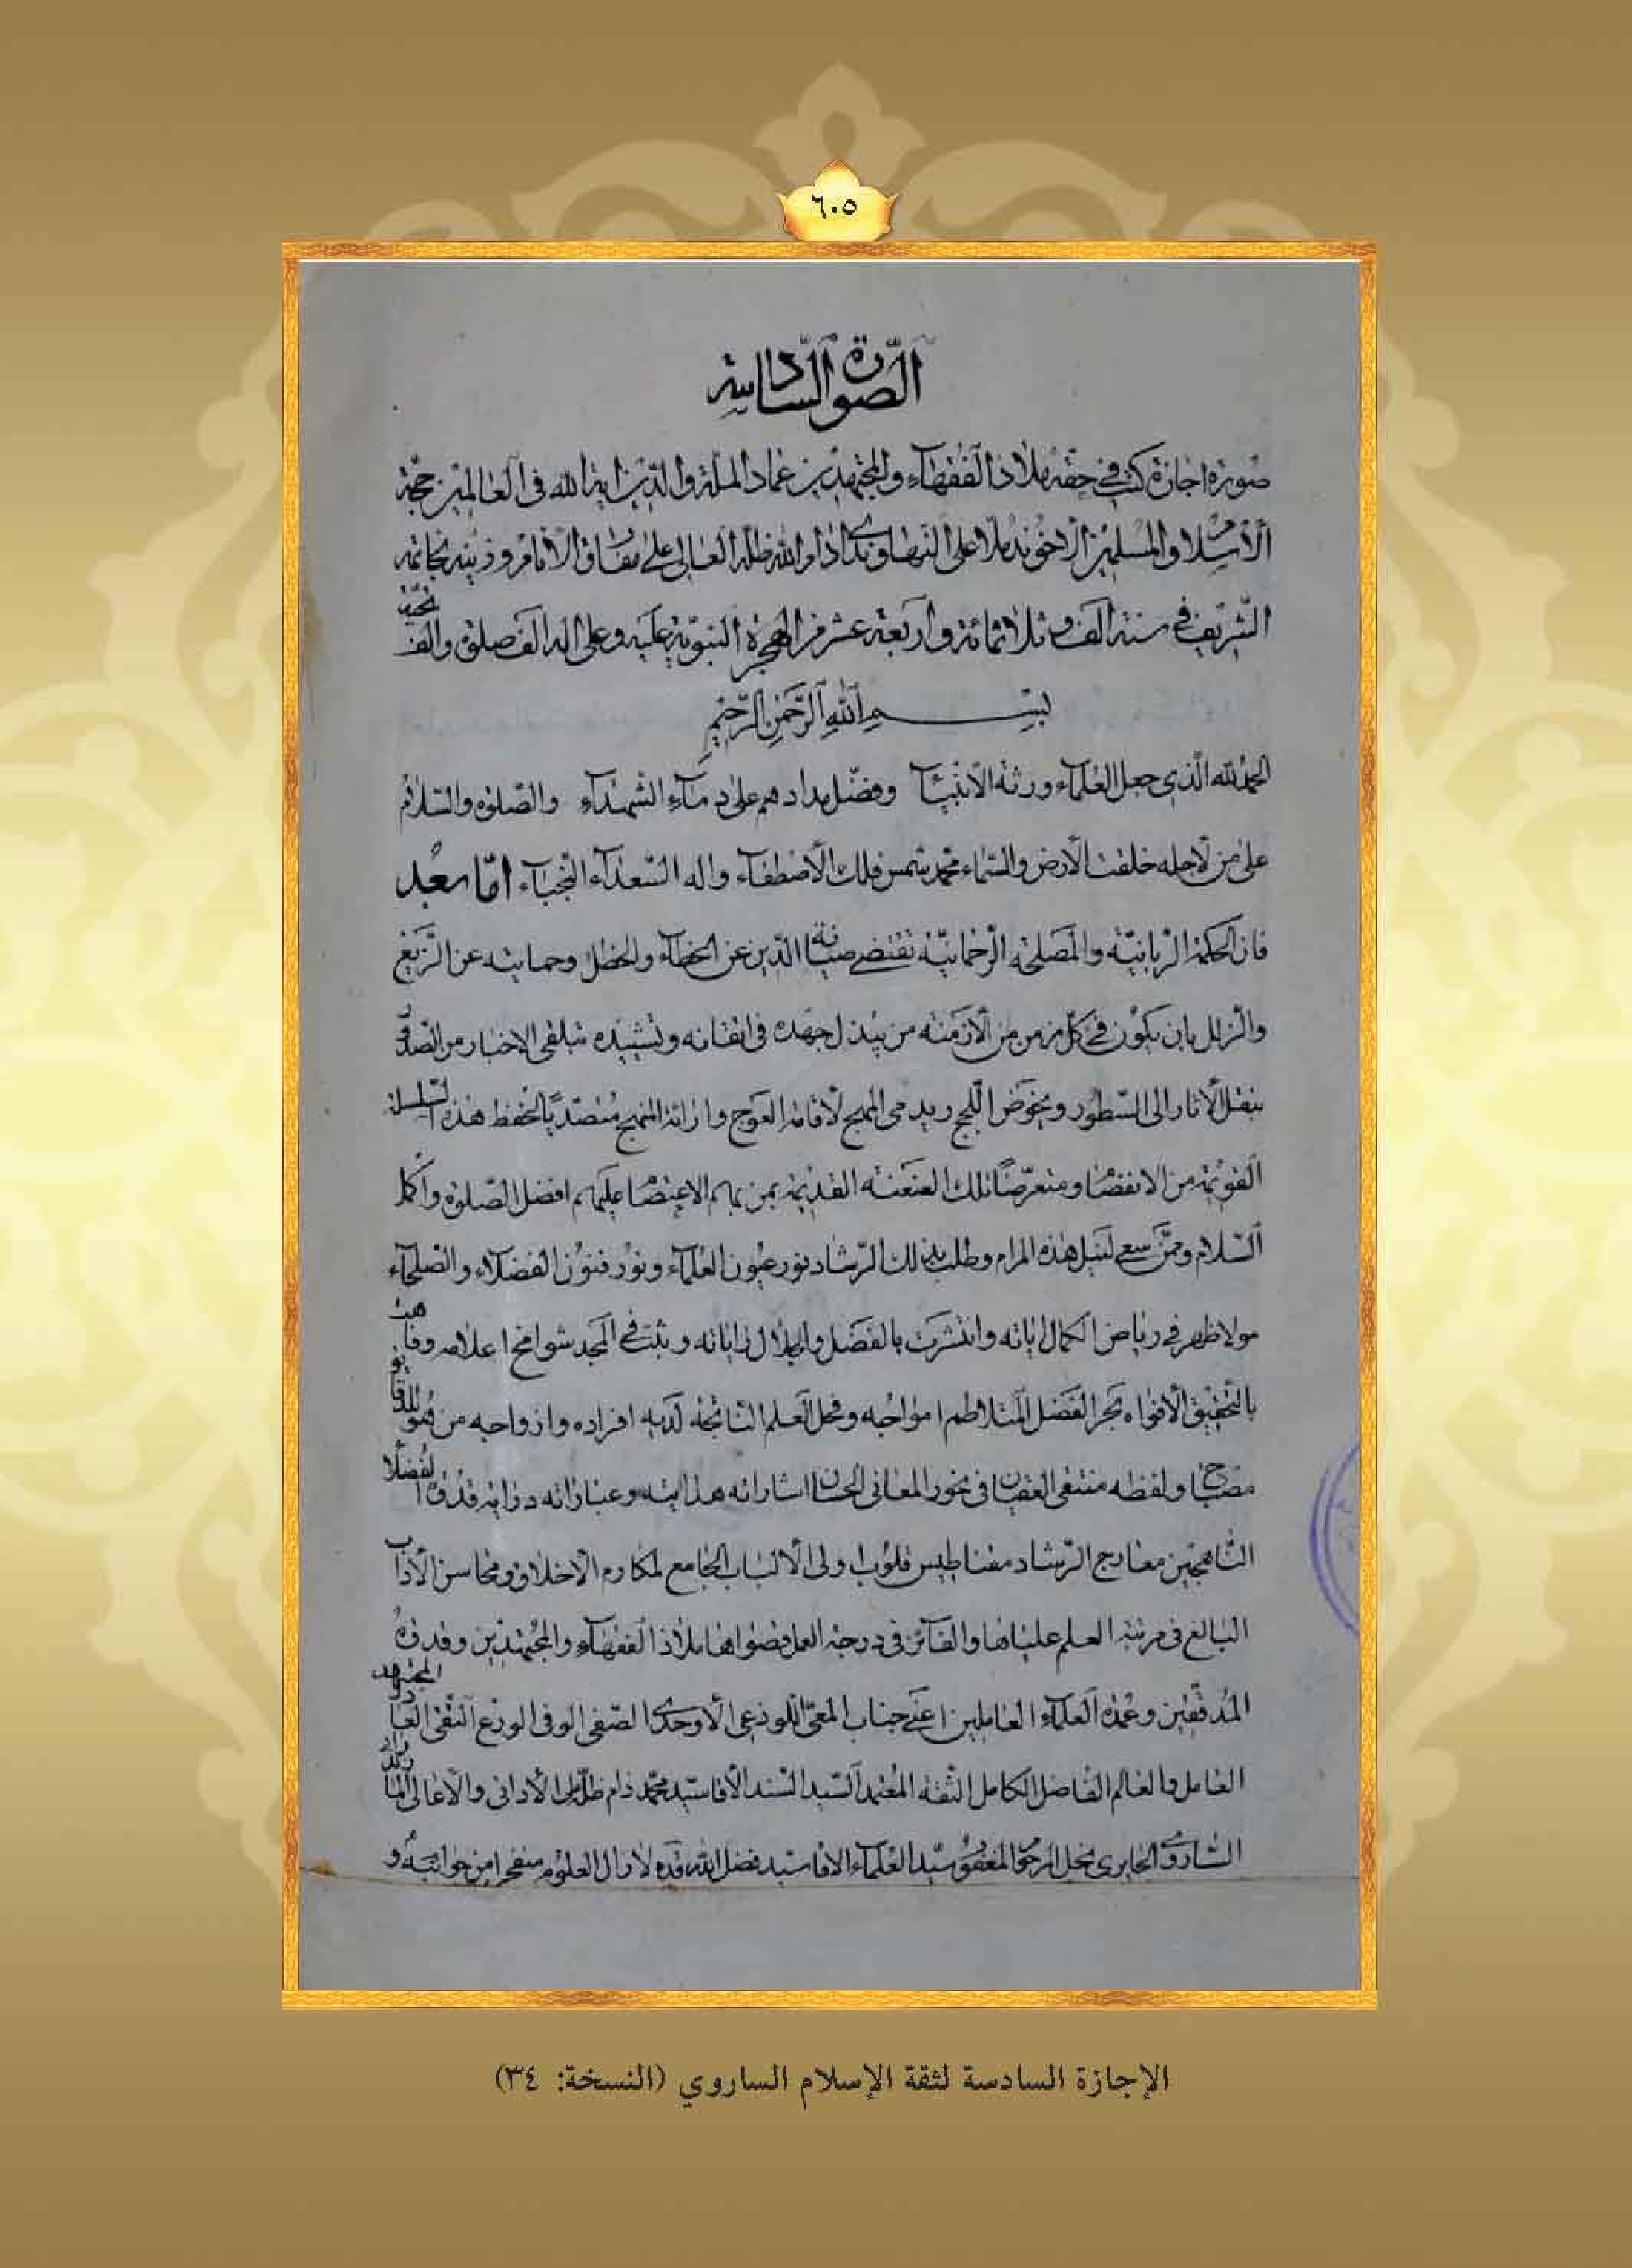 ٦٠٥
الصورة السادسة
صورة اجازة كتب في حقه ملاذ الفقهاء والمجتهدين عماد الملة والدين اية الله في العالمين حجة
الاسلام والمسلمين الاخوند ملا على النهاوندى ادام الله ظله العالى على مفارق الانام وزينه بخاتمه
الشريف في سنة الف و ثلاثمائة واربعة عشر من الهجرة النبوية عليه وعلى اله الف صلوة والف تحية
بسم الله الرحمن الرحيم
الحمد لله الذى جعل العلماء ورثة الانبياء وفضل مدادهم على دماء الشهداء والصلوة والسلام
على من لاجله خلقت الارض والسماء محمد شمس فلك الاصطفاء واله السعداء النجباء اما بعد
فان الحكمة الربانية والمصلحة الرحمانية تقتضى صيانة الدين عن الخطاء والخطل وحمايته عن الزيغ
والزلل بان يكون في كل زمن من الازمنة من يبذل جهده في اتقانه وتشييده بتلقى الاخبار من الصدور
بنقل الاثار الى السطور ويخوض اللجج ويدمى المهج لاقامة العوج وازاحة المنهج متصديا لحفظ هذه السلسلة
القويمة من الانفصام ومتعرضا تلك العنعنة القديمة بمن بهم الاعتصام عليهم افضل الصلوة واكمل
السلام وممن سعى لنيل هذه المرام وطلب بذلك الرشاد نور عيون العلماء ونور فنون الفضلاء والصلحاء
مولا ظهر في رياض الكمال اياته وانتشرت بالفضل والجلال راياته وثبتت في المجد شوامخ اعلامه وفاهت
بالتحقيق الافواه بحر الفضل المتلاطم امواجه وفحل العلم الناتجة لديه افراده وازواجه من
مصباح ولفظه منتقى العقيان في نحور المعانى الحسان اشاراته هداية وعباراته دراية قدوة الفضلا
الناهجين معارج الرشاد مغناطيس قلوب اولى الالباب الجامع لمكارم الاخلاق ومحاسن الاداب
البالغ في مرتبة العلم علياها والفائز في درجة العمل قصواها ملاذ الفقهاء والمجتهدين وقدوة
المدققين وعمدة العلماء العاملين اعنى جناب المعى اللوذعى الاوحدى الصفى الوفى الورع التقى العارف المجتهد
العامل والعالم الفاضل الكامل الثقة المعتمد السيد السند الاقا سيد محمد دام ظله على الادانى والاعالى
الساروى الحايرى نجل المرحوم المغفور سيد العلماء الاقا سيد فضل الله قده لا زال العلوم منفجرا من جوانبه و
الإجازة السادسة لثقة الإسلام الساروي (النسخة: ٣٤)